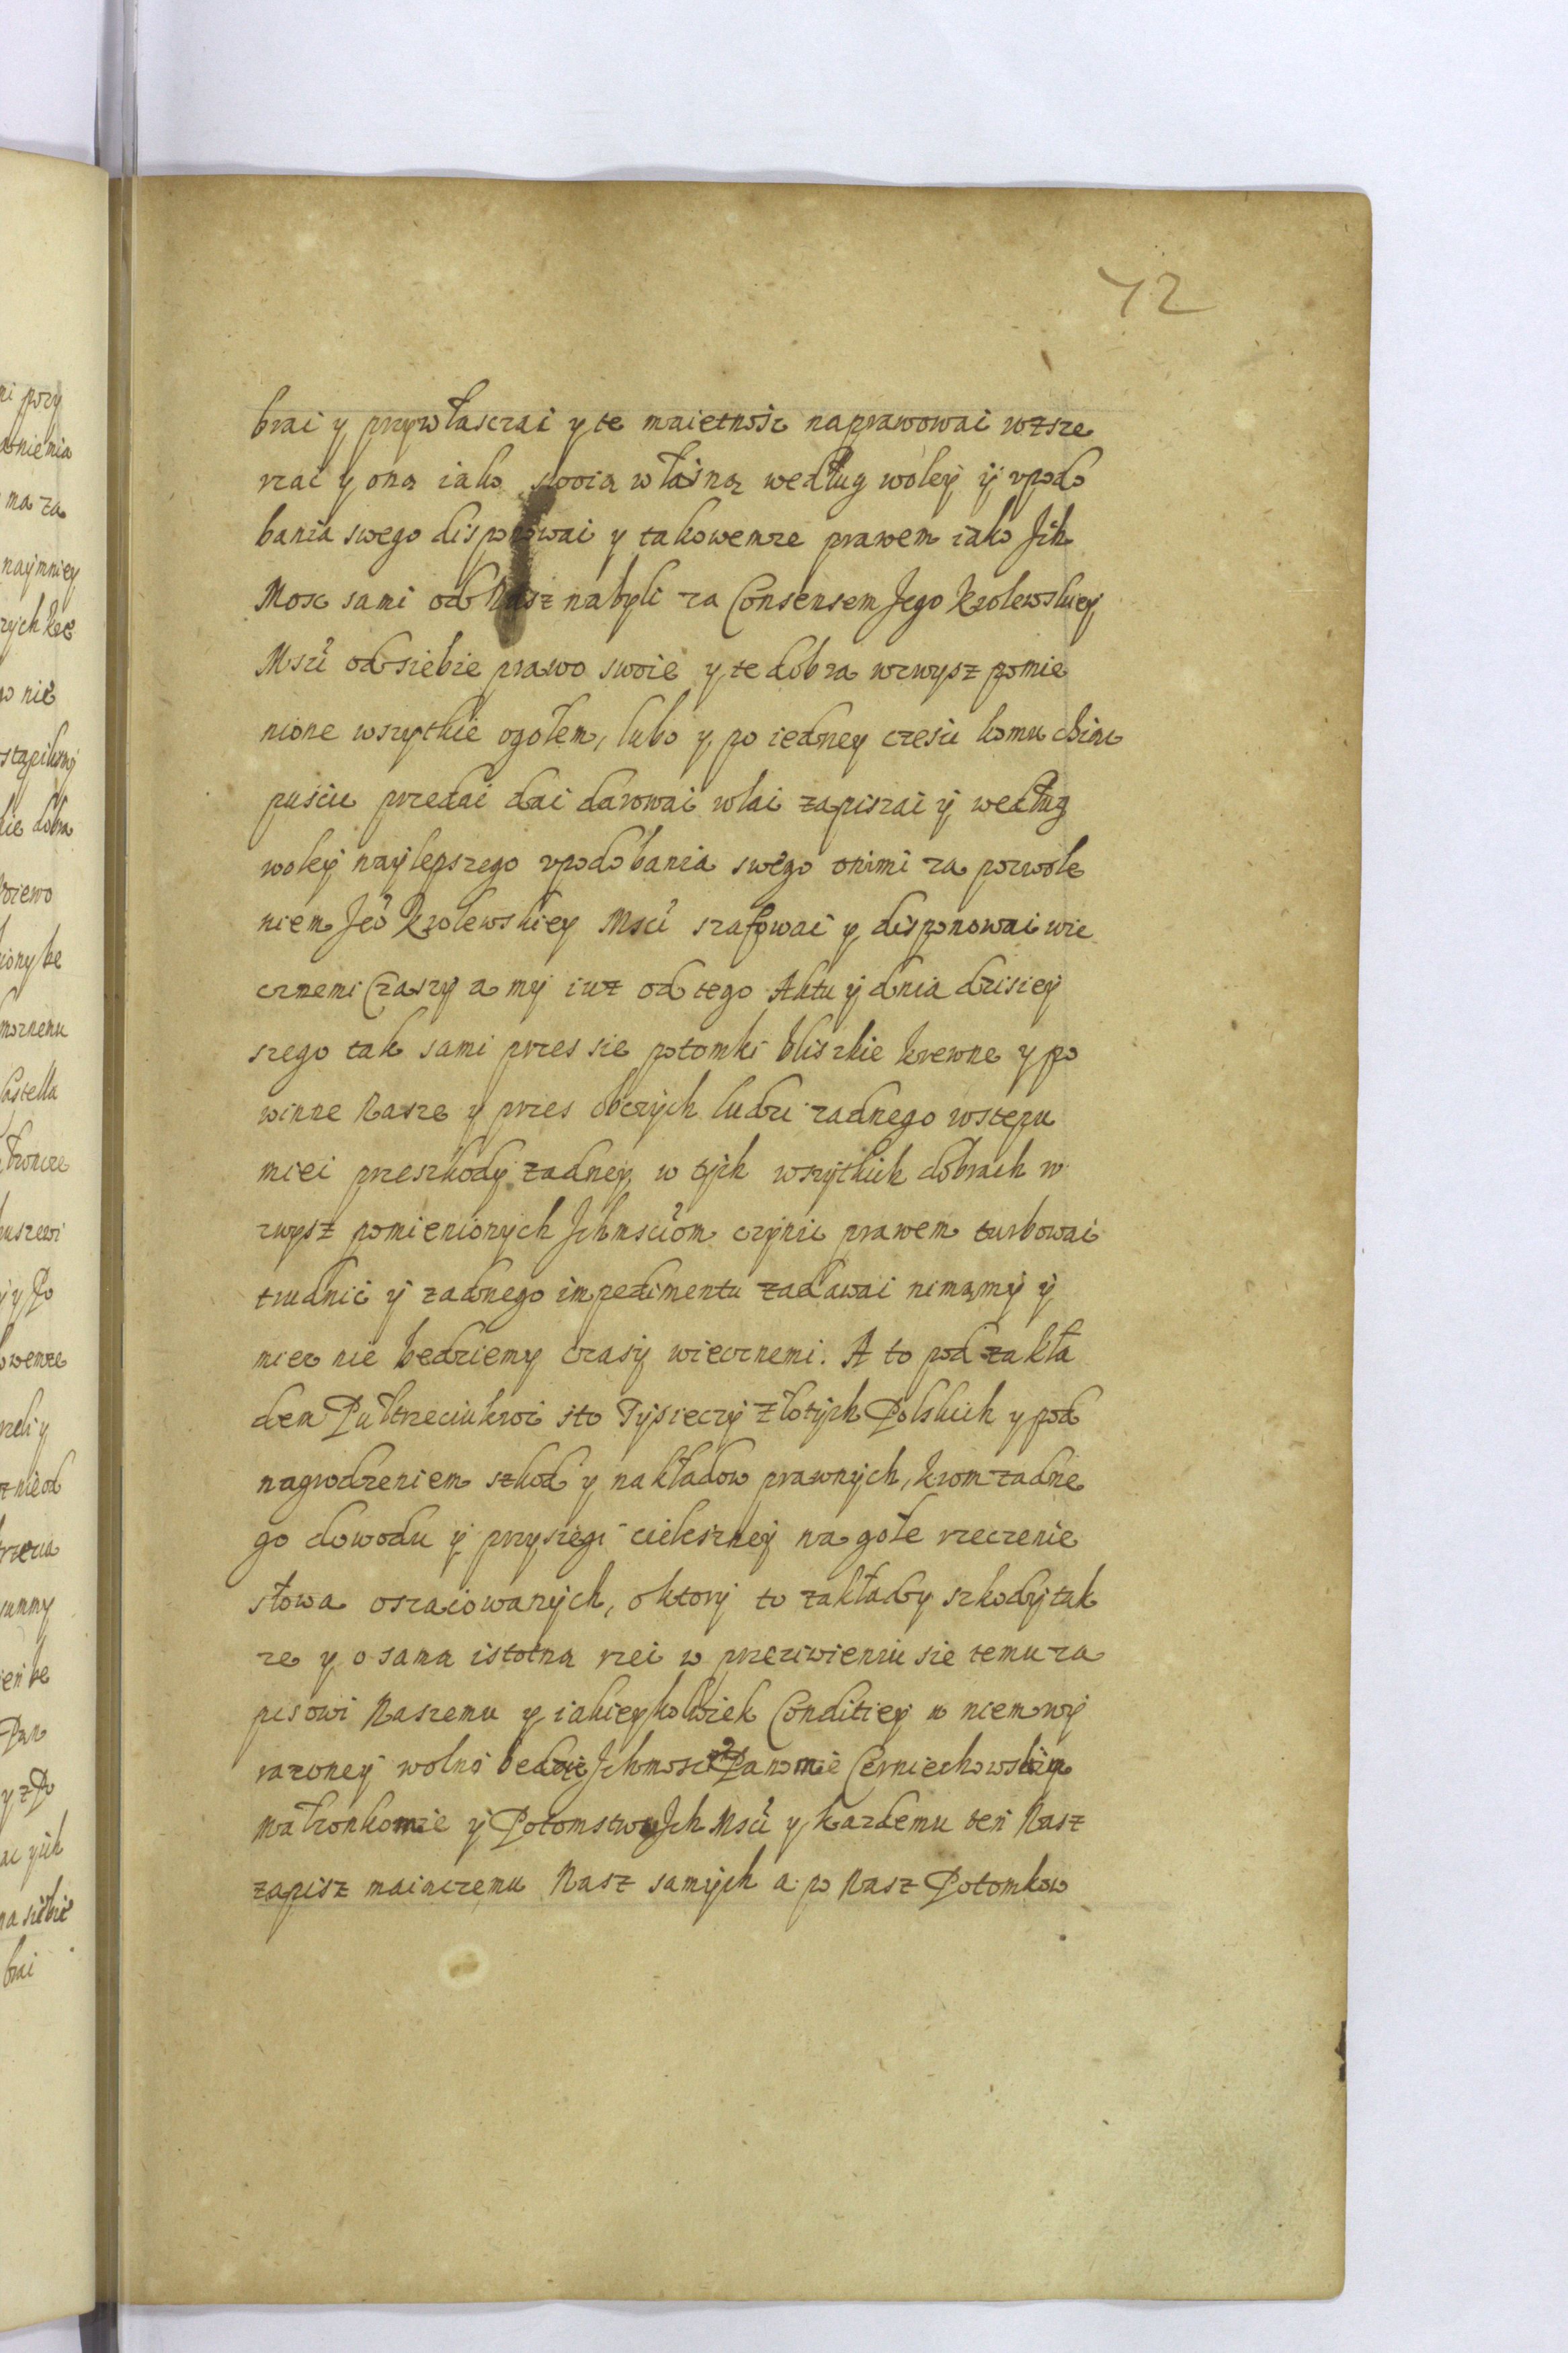 72
brać y przywłasczać y te maietnośc naprawować wzsze
rzać y oną iako swoią własną według woley ij vpodo
bania swego disponować y takowemze prawem iako Ich
Mosc sami od Nasz nabyli za Consensem Jego Krolewskiey
Mscĩ od siebie prawo swoie y te dobra wzwysz pomie
nione wszytkie ogołem, lubo y po iedney czesci komu chcąc
puścic przedać dać darować wlać zapiszać ij według
woleij naylepszego vpodobania swego onimi za pozwole
niem Jeõ Krolewskiey Mscĩ szafować y disponować wie
cznemi Czaszy a my iuz od tego Aktu ij dnia dzisiey
szego tak sami przes sie potomki bliszkie krewne y po
winne Nasze y przes obczych ludzi zadnego wstepu
mieć przeszkody zadney w tych wszytkich dobrach w
zwysz pomienionych Ichmsciom czynic prawem turbować
trudnić ij zadnego impedimentu zadawać nimamy ij
miec nie bedziemy czasy wiecznemi. A to pod zakła
dem Pułtrzeciukroć sto Tysieczy Złotych Polskich y pod
nagrodzeniem szkod y nakładow prawnych, krom zadne
go dowodu y przysiegi cieleszney na gołe rzeczenie
słowa oszaczowanych, o ktory to zakłady szkody tak
ze y o sama istotna rzec w przeciwieniu sie temu za
pisowi Naszemu y iakieykolwiek Conditiey w niem wy
razoney wolno bedzie Ichmosci Panom Czerniechowskim
Małzonkom ij Potomstwu Ich Mscĩ y kazdemu ten Nasz
zapisz maiaczemu Nasz samych a po Nasz Potomkow